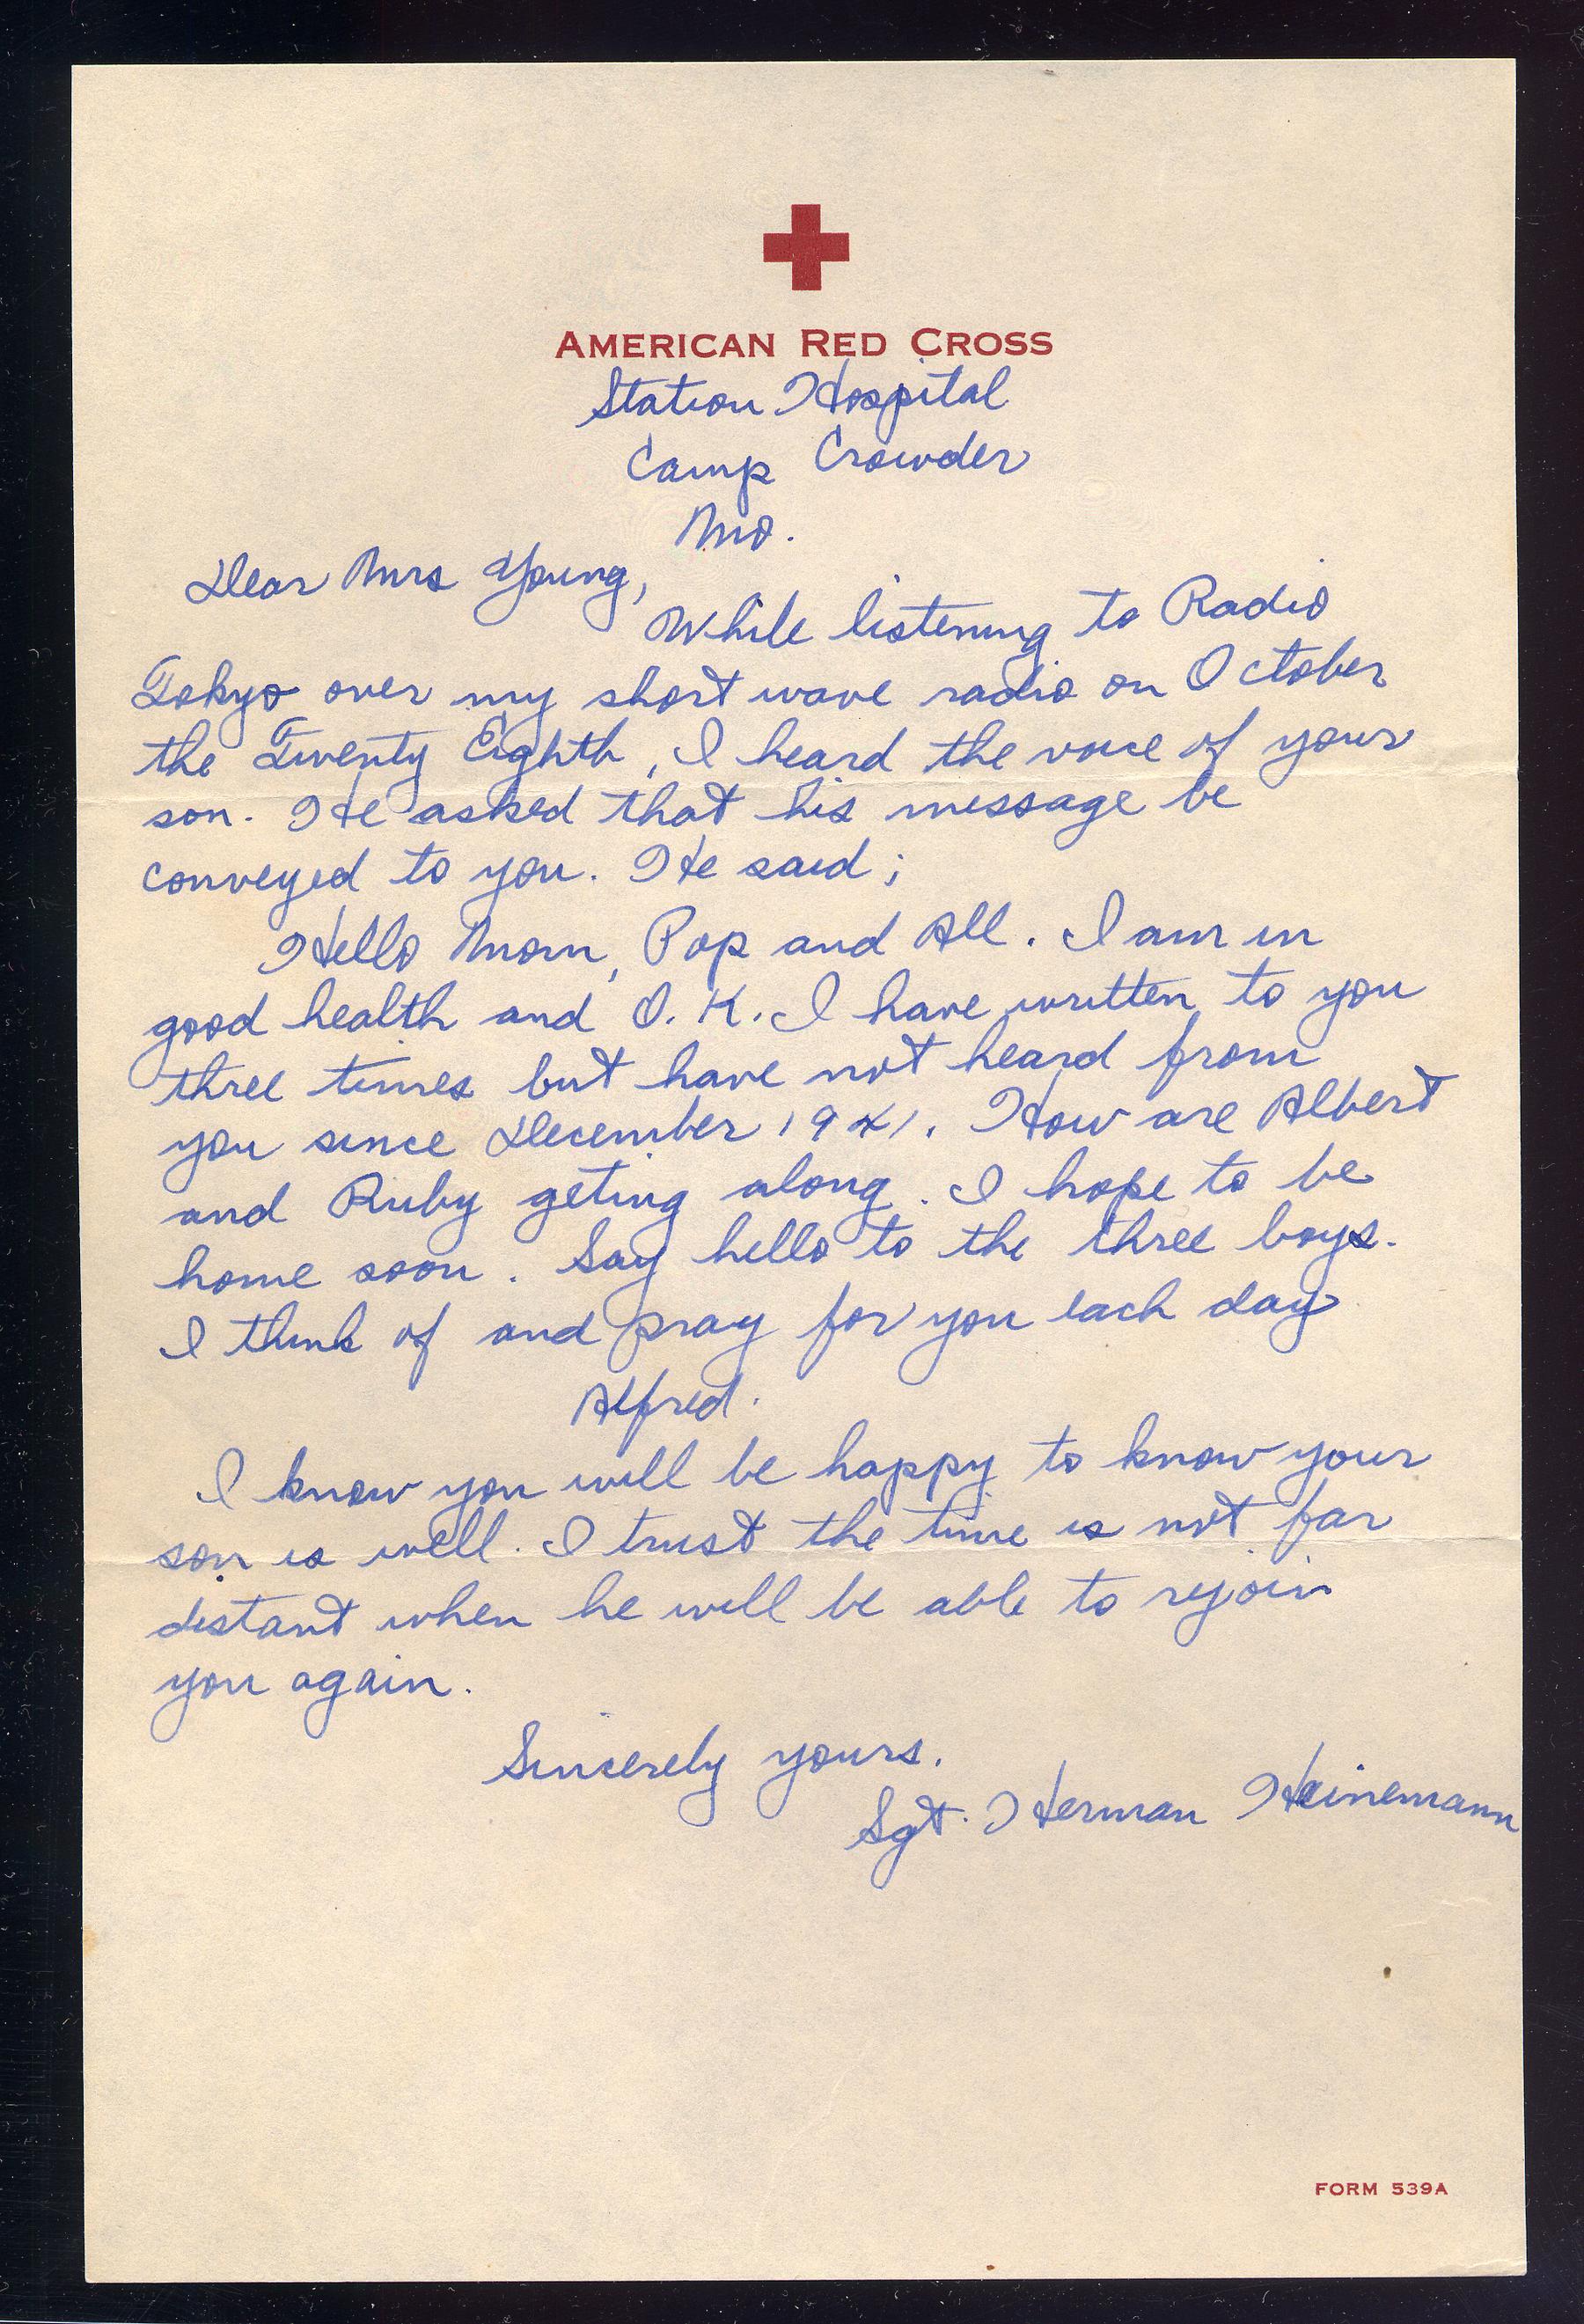 AMERICAN RED CROSS
Station Hospital
Camp Crowder
Mo.
Dear Mrs Young,
While listening to Radio
Tokyo over my short wave radio on October
the Twenty Eighth, I heard the voice of your
son. He asked that his message be
conveyed to you. He said;
Hello Mom, Pop and All. I am in
good health and O.K. I have written to you
three times but have not heard from
you since December 1941. How are Albert
and Ruby geting along. I hope to be
home soon. Say hello to the three boys.
I think of and pray for you each day
Alfred.
I know you will be happy to know your
son is well. I trust the time is not far
distant when he will be able to rejoin
you again.
Sincerely yours.
Sgt. Herman Heinemann
FORM 539A